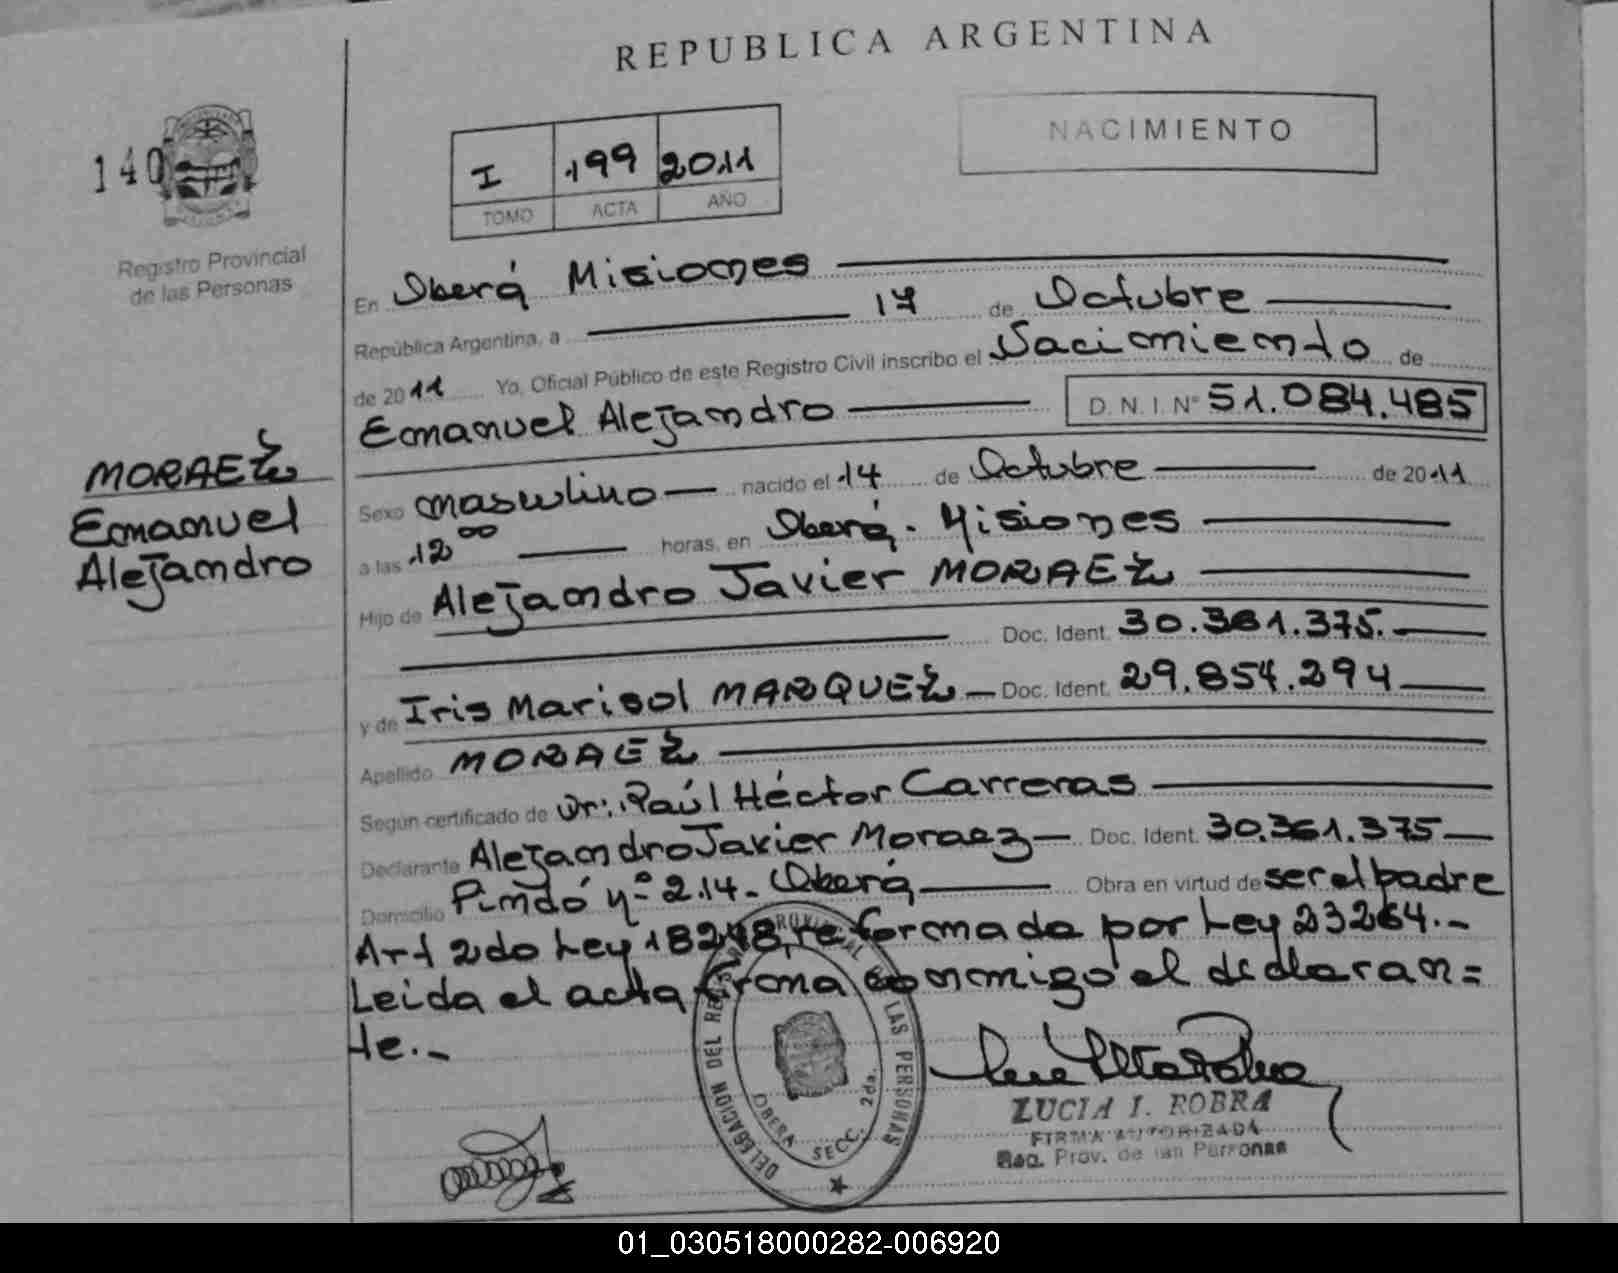 REPUBLICA ARGENTINA
140
NACIMIENTO
I 199 2011
TOMO ACTA AÑO
Registro Provincial
de las Personas
En Oberá Misiones
República Argentina, a 17 de Octubre
de 2011 Yo, Oficial Público de este Registro Civil inscribo el Nacimiento de
Emanuel Alejandro D.N.I. N° 51.084.485
MORAEZ
Emanuel
Alejandro
Sexo masculino nacido el 14 de Octubre de 2011
a las 12 00 horas, en Oberá - Misiones
Hijo de Alejandro Javier MORAEZ
Doc. Ident. 30.361.375.
y de Iris Marisol MARQUEZ Doc. Ident. 29.854.294
Apellido MORAEZ
Según certificado de Dr: Raúl Héctor Carreras
Declarante Alejandro Javier Moraez Doc. Ident. 30.361.375
Domicilio Pindó nº 214 - Oberá Obra en virtud de ser el padre
Art 2do Ley 18248, reformada por Ley 23264.-
Leida el acta firma conmigo el declaran=
te.-
DELEGACION DEL REG. PROVINCIAL DE LAS PERSONAS
OBERA SECC. 2da.
LUCIA I. ROBRA
FIRMA AUTORIZADA
Reg. Prov. de las Personas
01_030518000282-006920